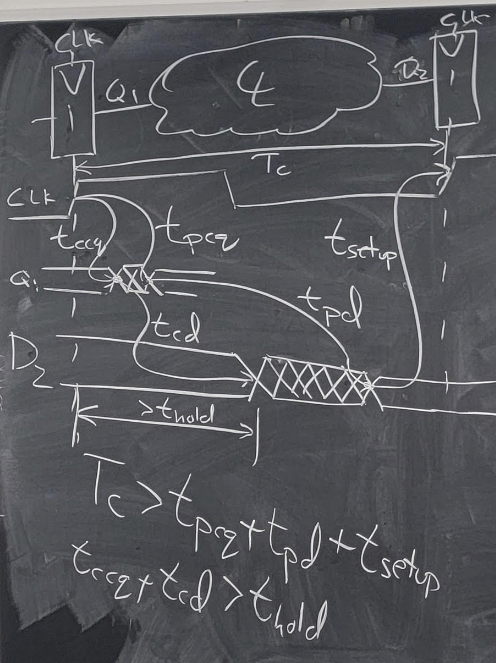 CLK
CLK
Q1
CL
D2
Tc
CLK
tccq
tpcq
tsetup
Q1
tpd
tcd
D2
>thold
Tc > tpcq + tpd + tsetup
tccq + tcd > thold